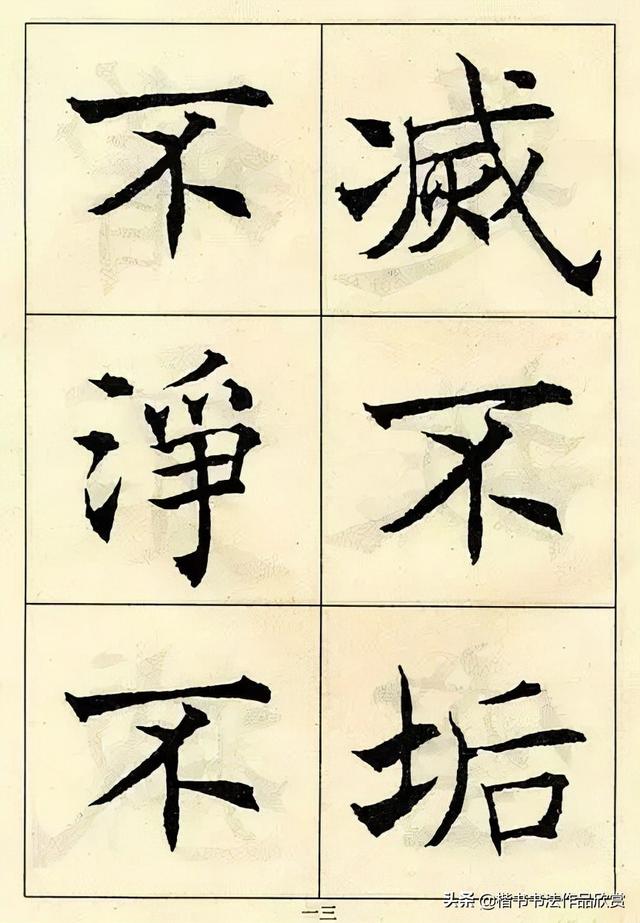 滅不垢
不淨不
一三
头条@楷书书法作品欣赏